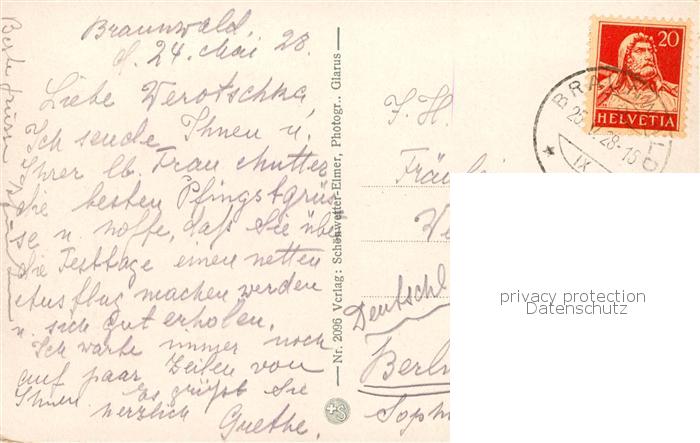 Braunwald,
d. 24. Mai 28.
Liebe Werotschka,
Ich sende Ihnen u.
Ihrer lb. Frau Mutter
die besten Pfingstgrüs-
se u. hoffe, daß Sie über
die Festtage einen netten
Ausflug machen werden
u. sich gut erholen.
Ich warte immer noch
auf paar Zeilen von
Ihnen. Es grüßt Sie
herzlich
Grethe.
Beste Grüsse
Nr. 2096 Verlag: Schönwetter-Elmer, Photogr., Glarus
20
HELVETIA
25. V. 28-16
IX
F. H.
Fräul
We
Deutschl
Berl
Soph
privacy protection
Datenschutz